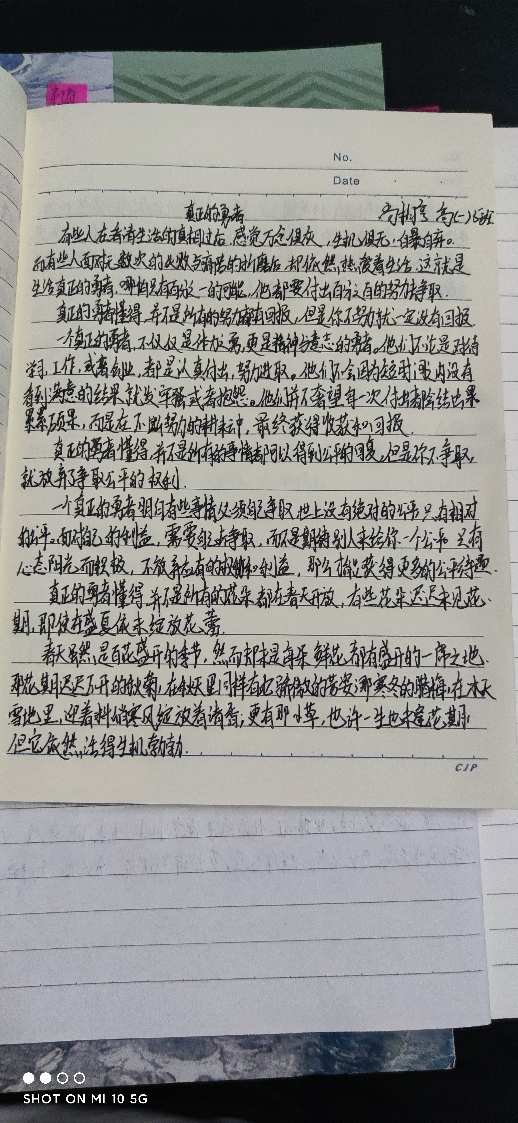 No.
Date
真正的勇者
高(一)15班
有些人在看清生活的真相过后,感觉万念俱灰,生机俱无,自暴自弃。
而有些人面对无数次的失败与痛苦的折磨后,却依然热爱着生活,这就是
生活真正的勇者,哪怕只有百分之一的可能,他都要付出百分之百的努力争取.
真正的勇者懂得,并不是所有的努力都有回报,但是你不努力就一定没有回报
一个真正的勇者,不仅仅是体力勇,更是精神与意志的勇者。他们不论是对待
学习,工作,或者创业,都是认真付出,努力进取。他们不会因为短时间内没有
看到满意的结果就发牢骚或者抱怨。他们并不奢望每一次付出都会结出果
累累硕果,而是在不断努力的耕耘中,最终获得收获和回报.
真正的勇者懂得,并不是所有的事情都可以得到公平的回复,但是你不争取,
就放弃了争取公平的权利.
一个真正的勇者明白有些事情必须努力争取,世上没有绝对的公平只有相对
的公平。面对自己的利益,需要努力去争取,而不是期待别人来给你一个公平 只有
心态阳光而积极,不放弃应有的权利和利益,那么你也会获得更多的公平待遇.
真正的勇者懂得,并不是所有的花朵都在春天开放,有些花朵迟迟未见花
期,即使在盛夏依未绽放花蕾.
春天虽然是百花盛开的季节,然而却未是每朵鲜花都有盛开的一席之地.
那花期迟迟不开的秋菊,在秋天里同样有它骄傲的芳姿;那寒冬的腊梅,在冰天
雪地里,迎着料峭寒风绽放着清香,更有那小草,也许一生也未逢花期
但它依然,活得生机勃勃.
CIP
SHOT ON MI 10 5G